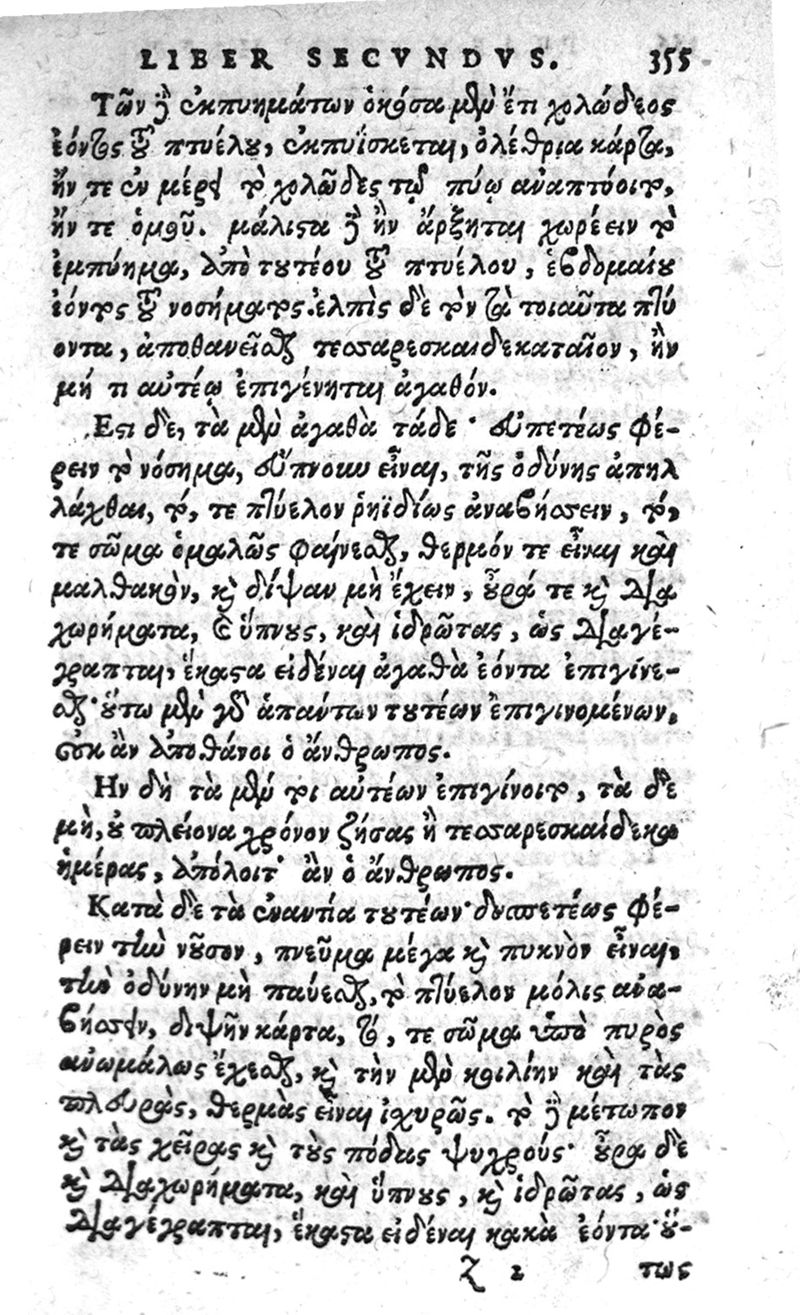 LIBER SECVNDVS. 355
Τῶν δὲ ἐκπυημάτων ὁκόσα μὲν ἔτι χολώδεος
ἐόντος τοῦ πτυέλου, ἐκπυΐσκεται, ὀλέθρια κάρτα,
ἤν τε ἐν μέρει τὸ χολῶδες τῷ πύῳ ἀναπτύοιτο,
ἤν τε ὁμοῦ. μάλιστα δὲ ἢν ἄρξηται χωρέειν τὸ
ἐμπύημα, ἀπὸ τουτέου τοῦ πτυέλου, ἑβδομαίου
ἐόντος τοῦ νοσήματος. ἐλπὶς δὲ τὸν τὰ τοιαῦτα πτύ
οντα, ἀποθανεῖσθαι τεσσαρεσκαιδεκαταῖον, ἢν
μή τι αὐτέῳ ἐπιγένηται ἀγαθόν.
Εστι δὲ, τὰ μὲν ἀγαθὰ τάδε· εὐπετέως φέ-
ρειν τὸ νόσημα, εὔπνοον εἶναι, τῆς ὀδύνης ἀπηλ
λάχθαι, τό, τε πτύελον ῥηϊδίως ἀναβήσσειν, τό,
τε σῶμα ὁμαλῶς φαίνεσθαι, θερμόν τε εἶναι καὶ
μαλθακὸν, καὶ δίψαν μὴ ἔχειν, οὖρά τε καὶ δια
χωρήματα, καὶ ὕπνους, καὶ ἱδρῶτας, ὡς διαγέ-
γραπται, ἕκαστα εἰδέναι ἀγαθὰ ἐόντα ἐπιγίνε-
σθαι· οὕτω μὲν γὰρ ἁπάντων τουτέων ἐπιγινομένων,
οὐκ ἂν ἀποθάνοι ὁ ἄνθρωπος.
Ην δὴ τὰ μέν τοι αὐτέων ἐπιγίνοιτο, τὰ δὲ
μὴ, οὐ πλείονα χρόνον ζήσας ἢ τεσσαρεσκαίδεκα
ἡμέρας, ἀπόλοιτ' ἂν ὁ ἄνθρωπος.
Κατὰ δὲ τὰ ἐναντία τουτέων· δυσπετέως φέ-
ρειν τὴν νοῦσον, πνεῦμα μέγα καὶ πυκνὸν εἶναι,
τὴν ὀδύνην μὴ παύεσθαι, τὸ πτύελον μόλις ἀνα-
βήσσειν, διψῆν κάρτα, τό, τε σῶμα ὑπὸ πυρὸς
ἀνωμάλως ἔχεσθαι, καὶ τὴν μὲν κοιλίην καὶ τὰς
πλευρὰς, θερμὰς εἶναι ἰσχυρῶς. τὸ δὲ μέτωπον
καὶ τὰς χεῖρας καὶ τοὺς πόδας ψυχρούς· οὖρα δὲ
καὶ διαχωρήματα, καὶ ὕπνους, καὶ ἱδρῶτας, ὡς
διαγέγραπται, ἕκαστα εἰδέναι κακὰ ἐόντα· οὕ-
Z 2 τως